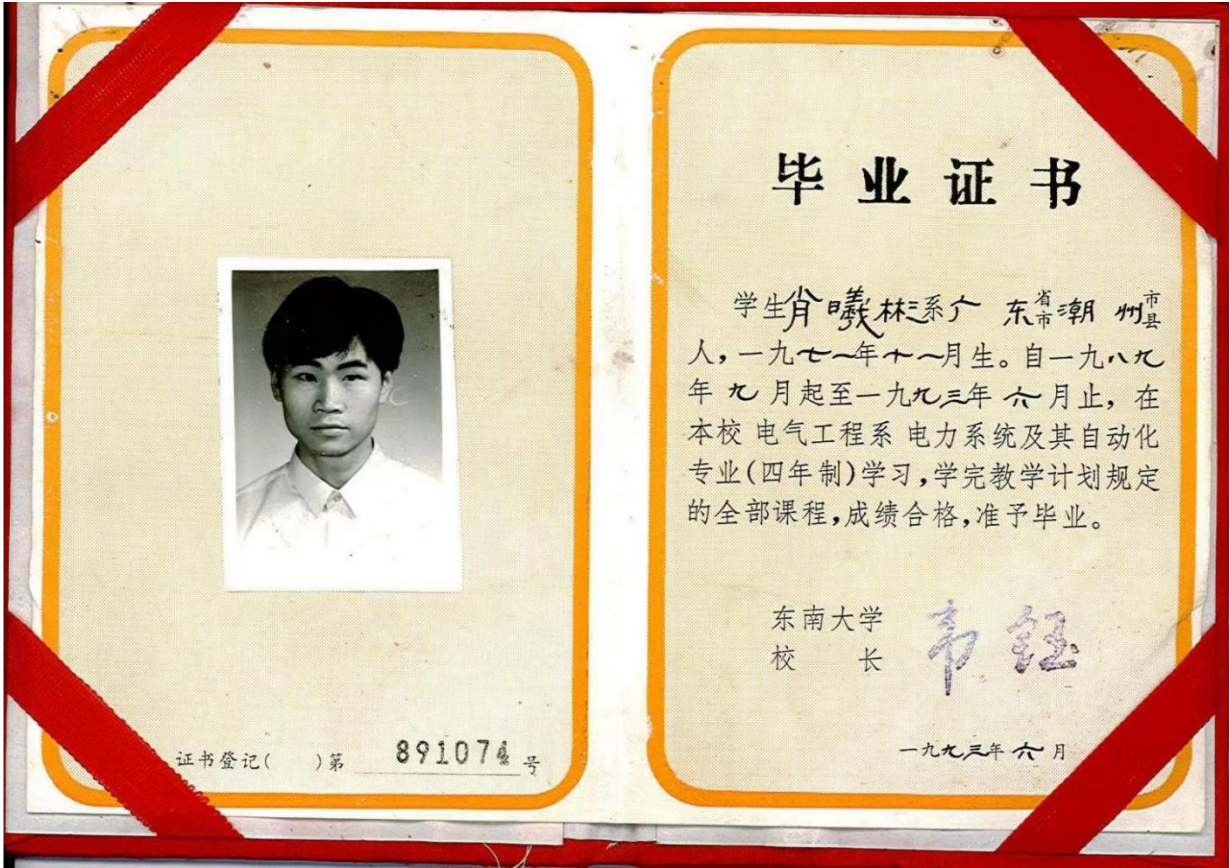 证书登记( )第 891074 号
毕业证书
学生肖曦彬系广东省市潮州市县
人，一九七一年十一月生。自一九八九
年九月起至一九九三年六月止，在
本校 电气工程系 电力系统及其自动化
专业(四年制)学习，学完教学计划规定
的全部课程，成绩合格，准予毕业。
东南大学
校 长 韦钰
一九九三年六月